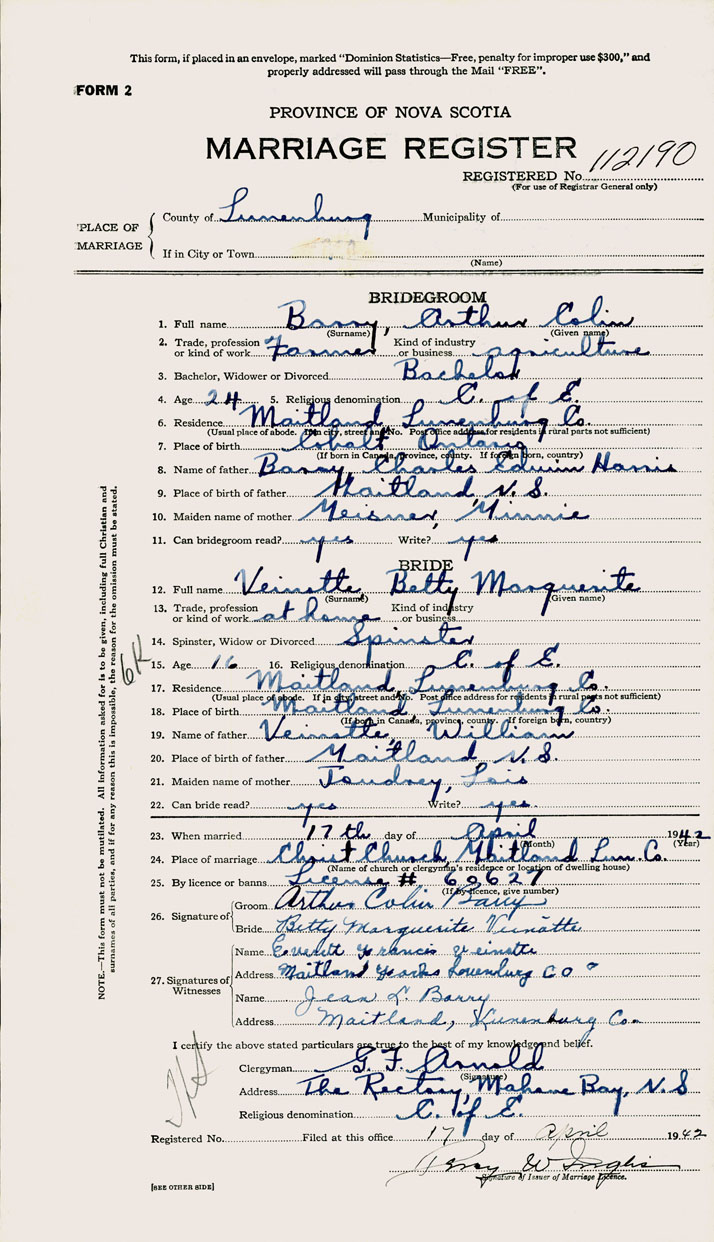 This form, if placed in an envelope, marked "Dominion Statistics—Free, penalty for improper use $300," and
properly addressed will pass through the Mail "FREE".
FORM 2
PROVINCE OF NOVA SCOTIA
MARRIAGE REGISTER
112190
REGISTERED No.
(For use of Registrar General only)
PLACE OF MARRIAGE
County of Lunenburg Municipality of
If in City or Town
(Name)
BRIDEGROOM
1. Full name Barry, Arthur Colin
(Surname) (Given name)
2. Trade, profession or kind of work Farmer Kind of industry or business agriculture
3. Bachelor, Widower or Divorced Bachelor
4. Age 24 5. Religious denomination C. of E.
6. Residence Maitland Lunenburg Co.
(Usual place of abode. If in city, street and No. Post office address for residents in rural parts not sufficient)
7. Place of birth Cobalt Ontario
(If born in Canada, province, county. If foreign born, country)
8. Name of father Barry, Charles Edwin Harris
9. Place of birth of father Maitland, N. S.
10. Maiden name of mother Meisner, Minnie
11. Can bridegroom read? yes Write? yes
BRIDE
12. Full name Veinotte, Betty Marguerite
(Surname) (Given name)
13. Trade, profession or kind of work at home Kind of industry or business
14. Spinster, Widow or Divorced Spinster
15. Age 16 16. Religious denomination C. of E.
17. Residence Maitland, Lunenburg Co.
(Usual place of abode. If in city, street and No. Post office address for residents in rural parts not sufficient)
18. Place of birth Maitland, Lunenburg Co.
(If born in Canada, province, county. If foreign born, country)
19. Name of father Veinotte, William
20. Place of birth of father Maitland N. S.
21. Maiden name of mother Joudrey, Lois
22. Can bride read? yes Write? yes.
23. When married 17th day of April 1942
(Month) (Year)
24. Place of marriage Christ Church, Maitland Lun. Co.
(Name of church or clergyman's residence or location of dwelling house)
25. By licence or banns License # 69627
(If by licence, give number)
26. Signature of Groom Arthur Colin Barry
Bride Betty Marguerite Veinotte
27. Signatures of Witnesses
Name Everett Francis Veinotte
Address Maitland Lounburg CO
Name Jean L. Barry
Address Maitland, Lunenburg Co.
I certify the above stated particulars are true to the best of my knowledge and belief.
Clergyman G. F. Arnold
(Signature)
Address The Rectory, Mahone Bay, N. S
Religious denomination C. of E.
Registered No. Filed at this office 17 day of April 1942
Percy W Inglis
Signature of Issuer of Marriage Licence.
[SEE OTHER SIDE]
NOTE.—This form must not be mutilated. All information asked for is to be given, including full Christian and
surnames of all parties, and if for any reason this is impossible, the reason for the omission must be stated.